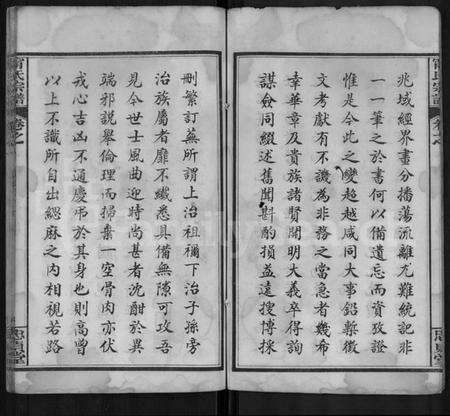 兆域經界書分播蕩流離尤難統記非
一筆之於書何以備遺忘而資攷證
惟是今此之變超越咸同大事鉛槧徵
文考獻有不譏為非務之當急者幾希
幸華章及貴族諸賢開明大義卒得詢
謀僉同綴述舊聞斟酌損益遠搜博採
刪繁訂蕪所謂上治祖禰下治子孫旁
治族屬者靡不纖悉具備無隙可攻吾
見今世士風曲迎時尚甚者沈酣於異
端邪說舉倫理而掃棄一空骨肉亦伏
戎心吉凶不通慶弔於其身也則高曾
以上不識所自出緦麻之內相視若路
甯氏宗譜
卷之